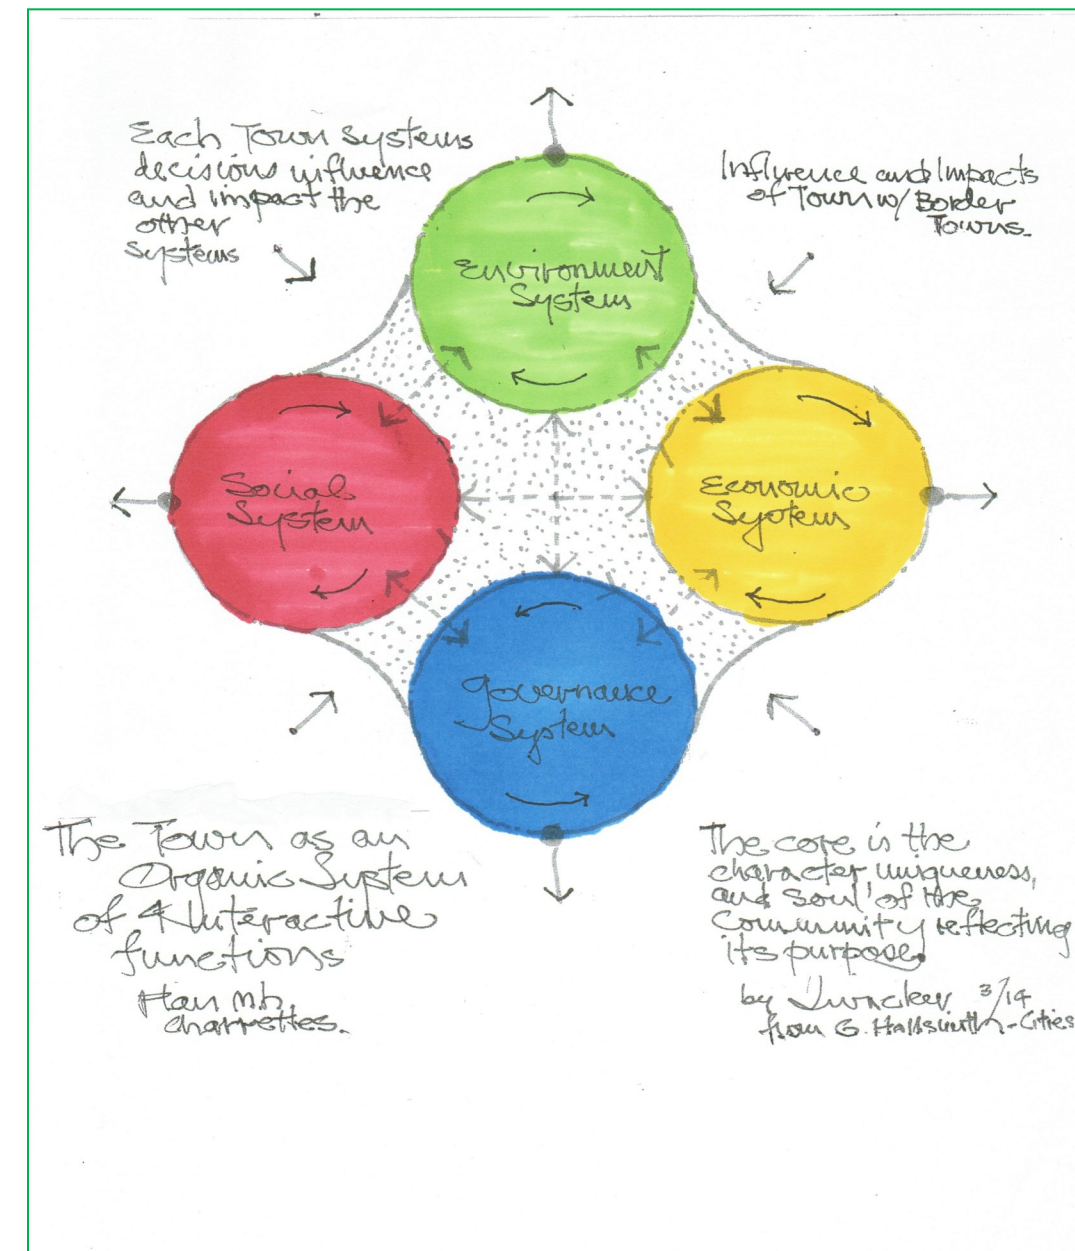 Each Town Systems
decisions influence
and impact the
other
Systems
Influence and Impacts
of Town w/ Border
Towns.
Environment
System
Social
System
Economic
System
Governance
System
The Town as an
Organic System
of 4 Interactive
functions
Plan n.h.
charrettes.
The core is the
character, uniqueness,
and 'soul' of the
Community reflecting
its purpose.
by 3/14
from G. Hallsmith - Cities